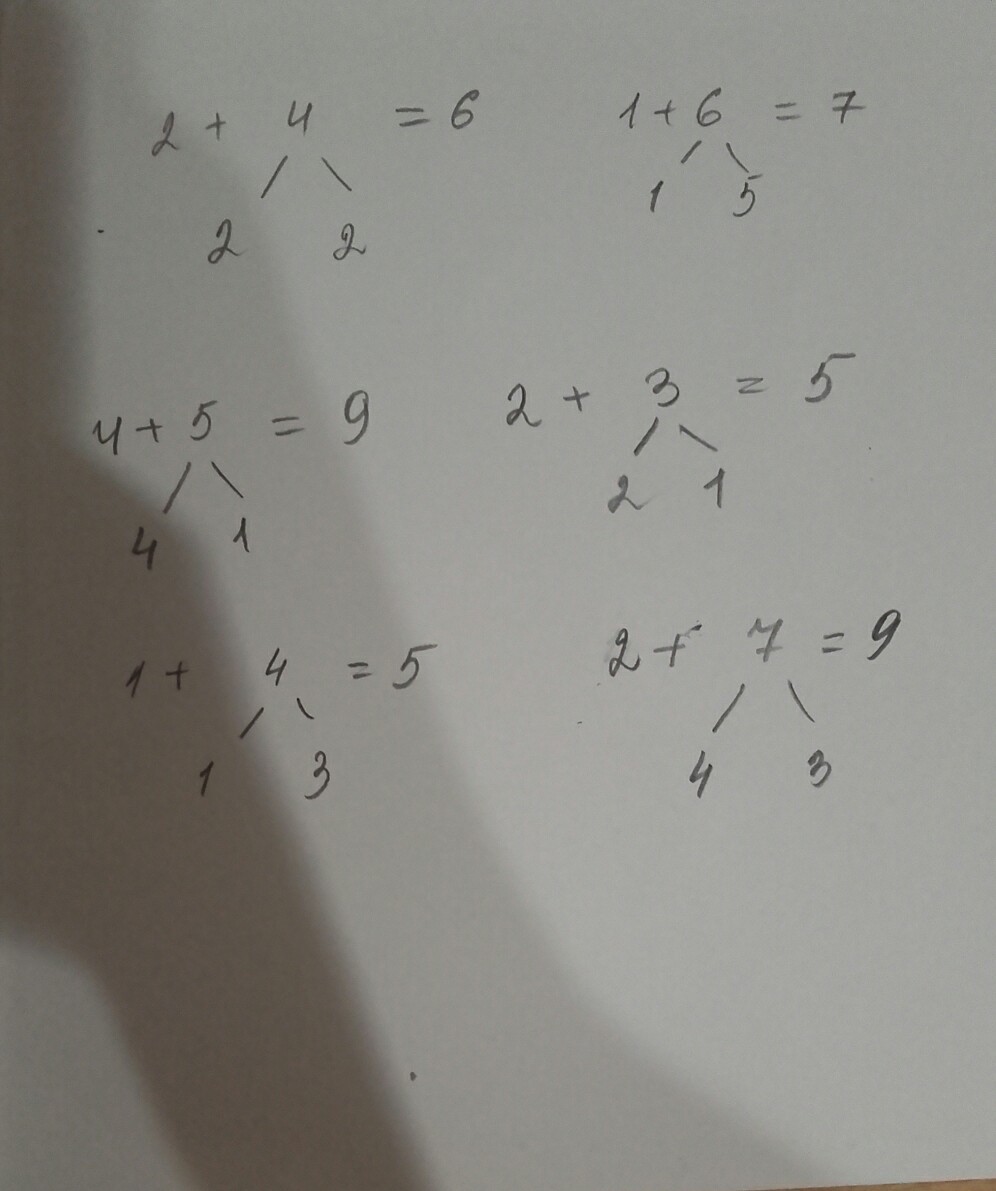 2 + 4 = 6 1 + 6 = 7
/ \ / \
2 2 1 5
4 + 5 = 9 2 + 3 = 5
/ \ / \
4 1 2 1
1 + 4 = 5 2 + 7 = 9
/ \ / \
1 3 4 3